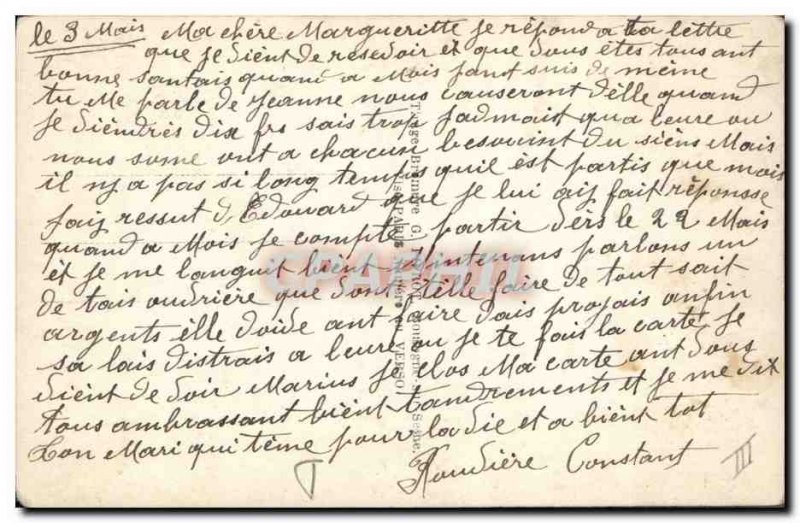 le 3 Mais Ma chère Margueritte je répond a ta lettre
que je vient de resevoir et que vous êtes tous ant
bonne santais quand a Mois sant suis de même
tu Me parle de Jeanne nous causeront d'elle quand
je viendrès dix frs sais trop jadmait qua leure ou
nous some ont a chacun besouint du siens Mais
il ny a pas si long temps quil est partis que mois
jaiy ressut d'Edouard que je lui aiy fait réponsse
quand a Mois je compte partir vèrs le 22 Mais
et je me languit bient Maintenans parlons un
de tais ouvrière que vont t'elle faire de tout sait
argents elle doive ant faire dais projais anfin
sa lais distrais a leure ou je te fais la carte je
vient de voir Marius je clos Ma carte ant vous
tous ambrassant bient tandrements et je me dit
ton Mari qui t'ème pour la vie et a bient tot
Constant
III
CPARAMA
VERSO